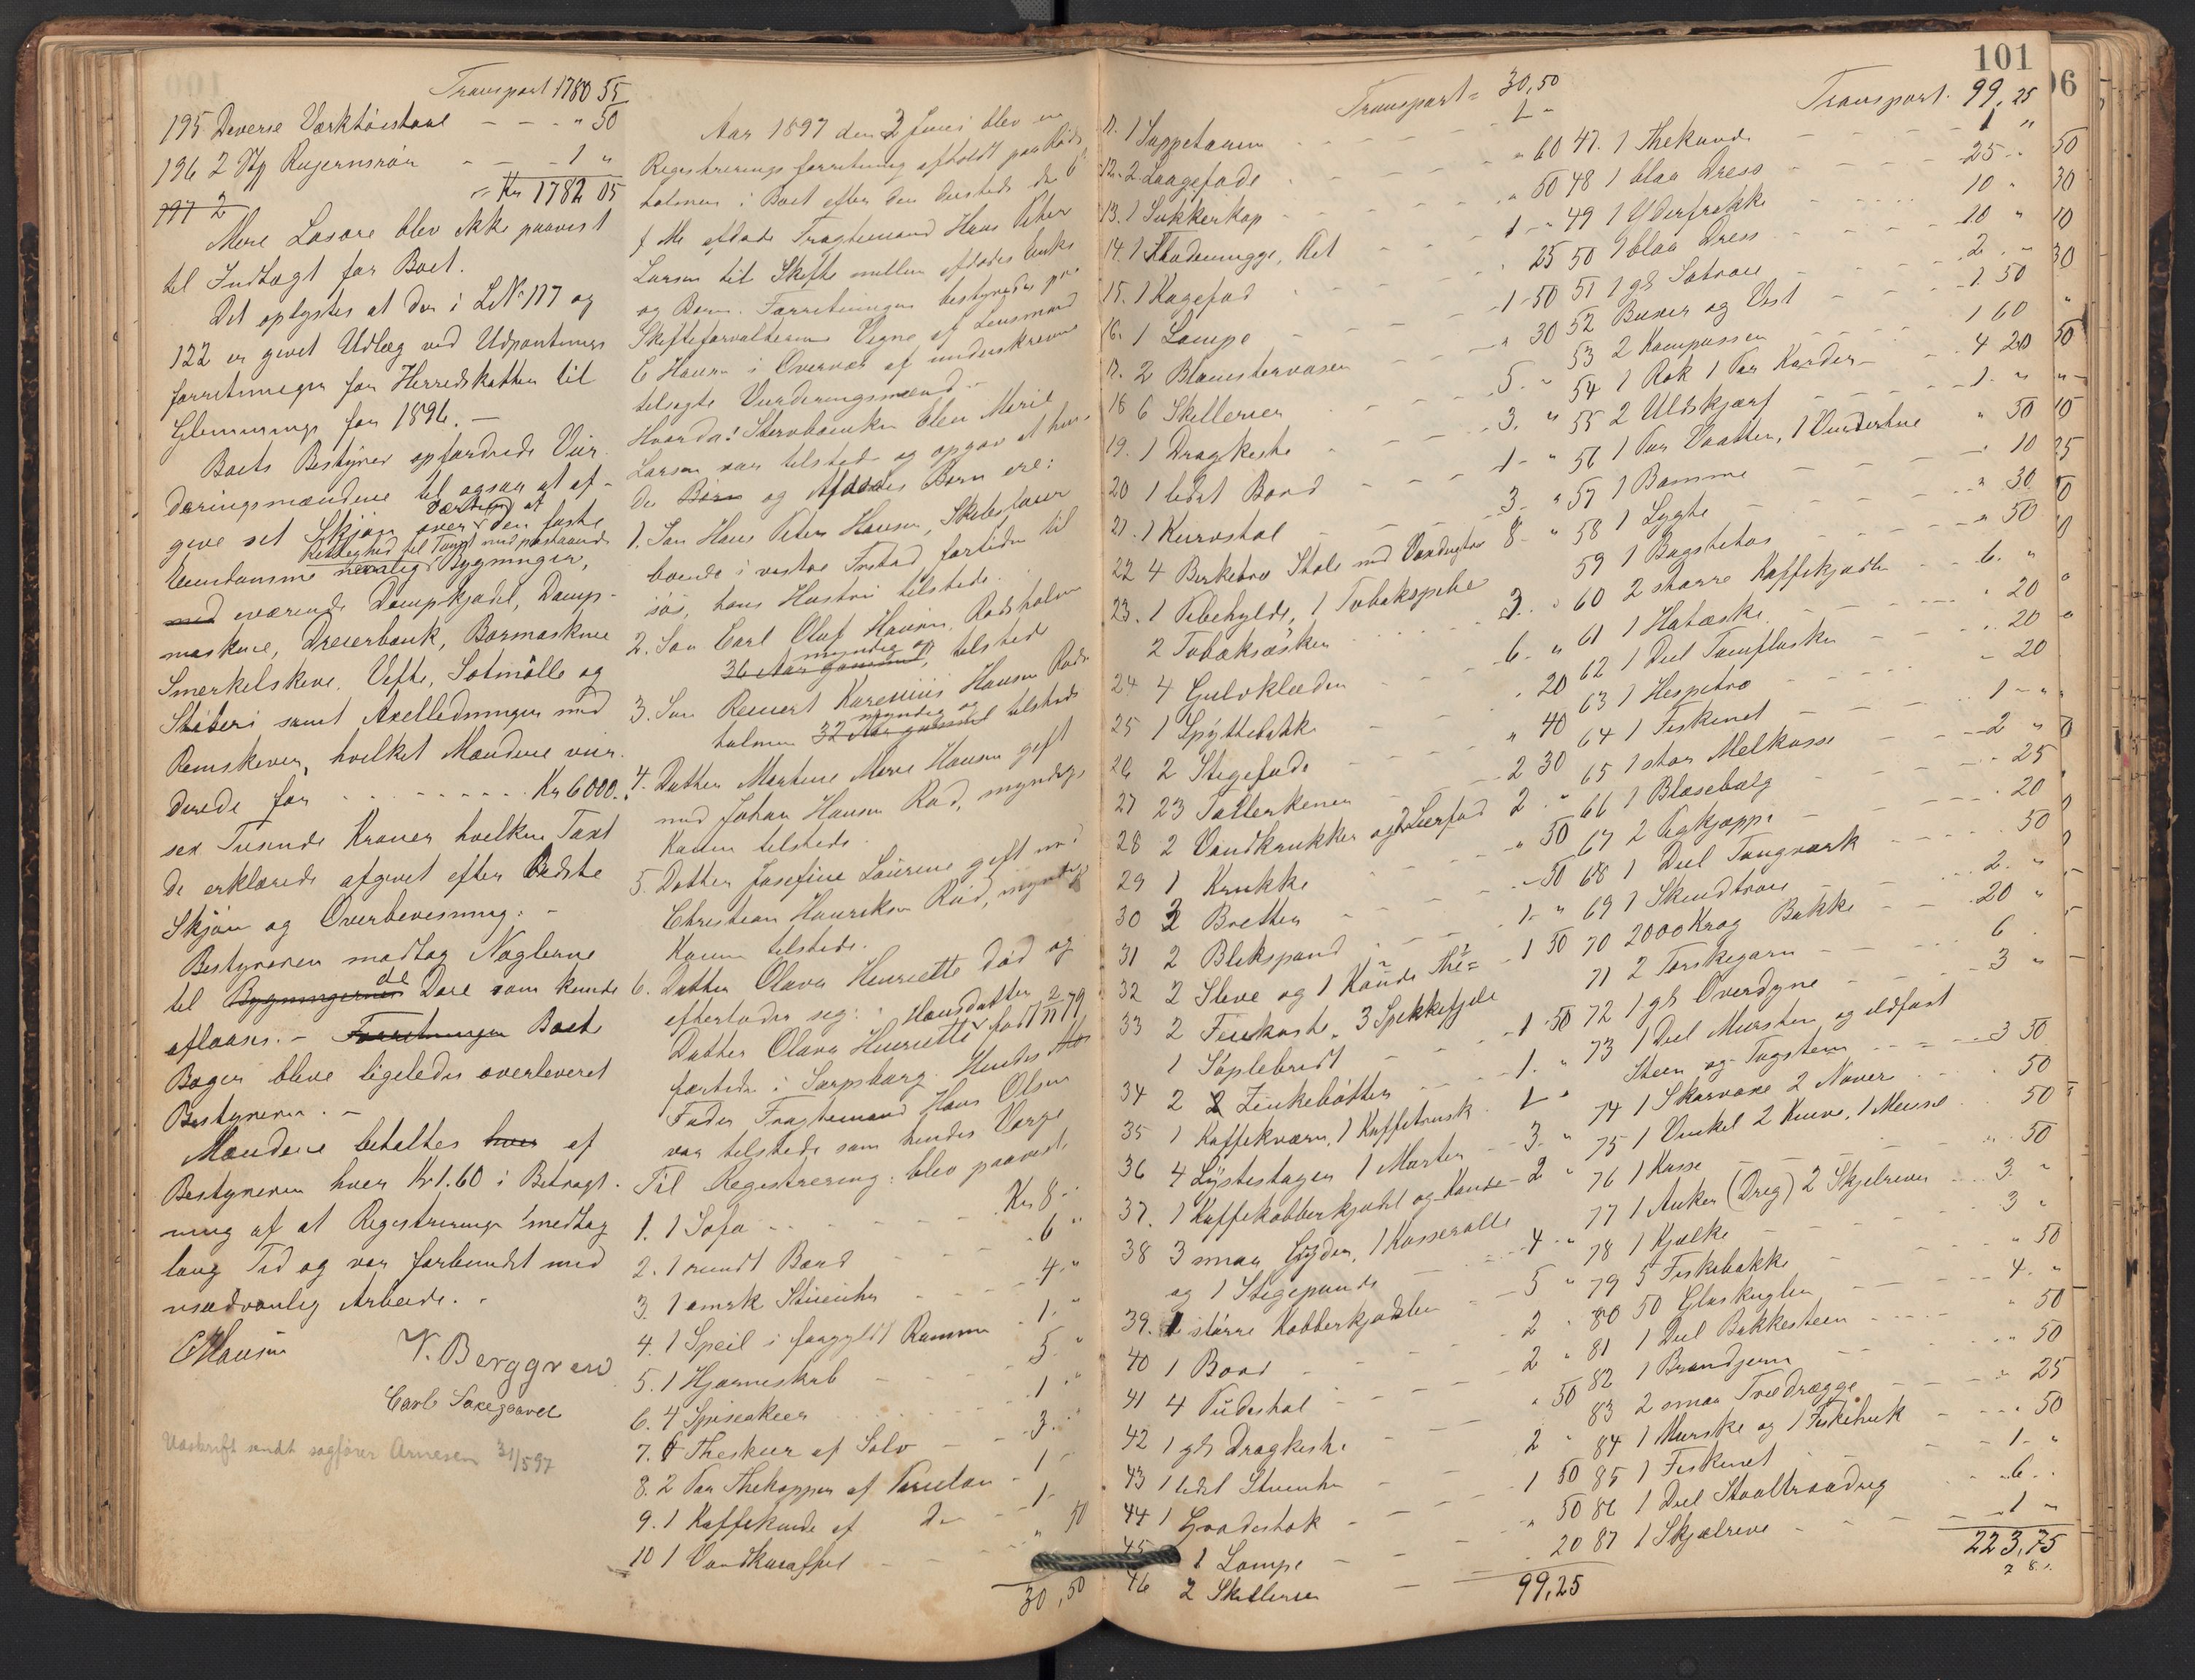 Transport 1780 55
195 Diverse Værktøistaal - - - " 50
196 2 Stg Rujernsrør - - - 1 "
= Kr 1782 05
197 2
Mere Løsøre blev ikke paavist
til Indtægt for Boet.
Det oplystes at der i L.N. 117 og
122 er givet Udlæg ved Udpantnings
forretninger for Herredskatten til
Glemminge for 1896. -
Boets Bestyrer opfordrede Vur-
deringsmændene til ogsaa at af-
give set Skjøn over Værdien af den faste
Rettighed til Tomt med paastaaende
Eiendomme nemlig Bygninger,
med værende Dampkjædel, Damp-
maskine, Dreierbænk, Bormaskine
Smerkelskive, Vifte, Sotmølle og
Støberi samt Axelledninger med
Remskiver, hvilket Mændene vur-
derede for - - - - - - - Kr 6000.
sex Tusinde Kroner hvilken Taxt
de erklærede afgivet efter bedste
Skjøn og Overbevisning. -
Bestyreren modtog Nøglerne
til Bygningernes de Døre som kunde
aflaases. - Forretningen Boets
Bøger bleve ligeledes overleveret
Bestyreren. -
Mændene betaltes hver af
Bestyreren hver Kr 1.60 i Betragt-
ning af at Registreringen medtog
lang Tid og var forbundet med
usædvanlig Arbeide. -
C Hansen
V. Berggren
Carl Saxegaard
Udskrift sendt sagfører Arnesen 31/5 97
Aar 1897 den 3 Juni blev en
Registrerings forretning afholdt paa Røds
holmen i Boet efter den dersteds den 6
f. M. afdøde Fragtemand Hans Peter
Larsen til Skifte mellem afdødes Enke
og Børn. Forretningen bestyredes paa
Skifteforvalterens Vegne af Lensmand
C Hansen i Overvær af underskrevne
tilsagte Vurderingsmænd. -
Hvorda: Stervboenken Elen Marie
Larsen var tilstede og opgav at hun-
des Børn og Afdødes Børn ere:
1. Søn Hans Peter Hansen, Skibsfører
boende i vestre Fredstad fortiden til
søs, hans Hustru tilstede.
2. Søn Carl Oluf Hansen, Rødsholmen
myndig og
36 Aar gammel, tilstede
3. Søn Reinert Karenius Hansen Røds
myndig og
holmen 32 Aar gammel tilstede
4. Datter Martine Marie Hansen gift
med Johan Hansen Rød, myndig
Konen tilstede.
5. Datter Josefine Laurine gift med
Christian Henriksen Rød, myndig
Konen tilstede.
6. Datter Olava Henriette død og
efterlader sig: Hansdatter
Datter Olava Henriette født 2/11 79
fortiden i Sarpsborg. Hendes
Fader Fragtemand Hans Olsen
var tilstede som hendes Værge
Til Registrering blev paavist
1. 1 Sofa - - - - - - Kr 8 -
2. 1 rundt Bord - - - - 6 "
3. 1 amrk Stueuhr - - - 4 "
4. 1 Speil i forgyldt Ramme - 1 "
5. 1 Hjørneskab - - - 5 "
6. 4 Spiseskeer - - - 1 "
7. 6 Theskeer af Sølv - - 3 "
8. 2 Par Thekopper af Porcelæn - 1 -
9. 1 Kaffekande af Do - - 1 -
10 1 Vandkaraffel - - - " 50
30,50
101
Transport = 30,50
11. 1 Suppeterrin - - - 1 -
12. 2 Laagefade - - - " 60
13. 1 Sukkerkop - - - " 50
14. 1 Flødemugge, Æt - - - 1 - "
15. 1 Kagefad - - - " 25
16. 1 Lampe - - - 1 50
17. 2 Blomstervaser - - - " 30
18 6 Skillerier - - - 5. "
19. 1 Dragkiste - - - 3. "
20 1 lidet Bord - - - 1 - "
21. 1 Kurvstol - - - 3. "
22 4 Birketræ Stole med Voxdugtræk 8 - "
23. 1 Pibehylde, 1 Tobakspibe
2 Tobaksæsker - - - 3. "
24 4 Gulvklæder - - - 6 - "
25 1 Spyttebakke - - - " 20
26 2 Stegefade - - - " 40
27 23 Tallerkener - - - 2 30
28 2 Vandkrukker og 2 Leerfad 2 "
29 1 Krukke - - - " 50
30 2 Bretter - - - " 50
31 2 Blikspand - - - 1 - "
32 2 Sleve og 1 Kande The - 1 50
33 2 Feiekoste, 3 Spikkefjele
1 Søplebredt - - - 1 50
34 2 Zinkebøtter - - - 1. "
35 1 Kaffekværn, 1 Kaffetrask 1 "
36 4 Lystestager 1 Morter - 3. "
37. 1 Kaffekobberkjedel og Kande - 2 "
38 3 smaa Gryder, 1 Kasserolle
og 1 Stegepande - - - 4 "
39. 1 større Kobberkjedel - 5 "
40 1 Bord - - - 2 "
41 4 Pindestol - - - 2 "
42 1 gl Dragkiste - - - " 50
43 1 lidet Stueuhr - - - 2 "
44 1 Grodestok - - - 1 50
45 1 Lampe - - - " 50
46 2 Skillerier - - - " 20
99,25
Transport. 99,25
47. 1 Thekande - - - 1 "
48 1 blaa Dress - - - 25 "
49 1 Yderfrakke - - - 10 "
50 1 blaa Dress - - - 10 "
51 1 gl Søtrøie - - - 2 - "
52 Buxer og Vest - - - 1 50
53 2 Kompasser - - - 1 60
54 1 Rok 1 Par Karder - - 4 20
55 2 Uldskjorf - - - 1. "
56 1 Par Vaatter, 1 Vindertræ " 50
57 1 Bomme - - - " 10
58 1 Lygte - - - " 30
59 1 Bogstitas - - - " 50
60 2 større Kaffekjedle - - 6. "
61 1 Hatæske - - - " 20
62 1 Deel Tomflasker - - " 20
63 1 Hespetræ - - - " 20
64 1 Fiskenet - - - 1 - "
65 1 stor Melkasse - - - 2 "
66 1 Blæsebælg - - - " 25
67 2 Øgkjøppe - - - " 20
68 1 Deel Tougværk - - - " 50
69 1 Skindtrøie - - - 2. "
70 2000 Krog Bakke - - 20 "
71 2 Torskegarn - - - 6 "
72 1 gl Overdyne - - - 3 "
73 1 Deel Mursten og ildfast
Steen og Tagsteen - - - 3 50
74 1 Skarvøxe 2 Naver - - " 50
75 1 Vinkel 2 Knive, 1 Meisel - " 50
76 1 Kasse - - - " 50
77 1 Anker (Dreg) 2 Skjelriver - 3. "
78 1 Kjælke - - - 3 "
79 5 Fiskebakke - - - " 50
80 50 Glaskugler - - - 4. "
81 1 Deel Bakkesteen - - - " 50
82 1 Brandjern - - - " 50
83 2 smaa Trædrægge - - - " 25
84 1 Murske og 1 Fiskehuk - - " 50
85 1 Fiskenet - - - 1 - "
86 1 Deel Staaltraadrig - - 6. "
87 1 Skjælrive - - - 1 -
223,75